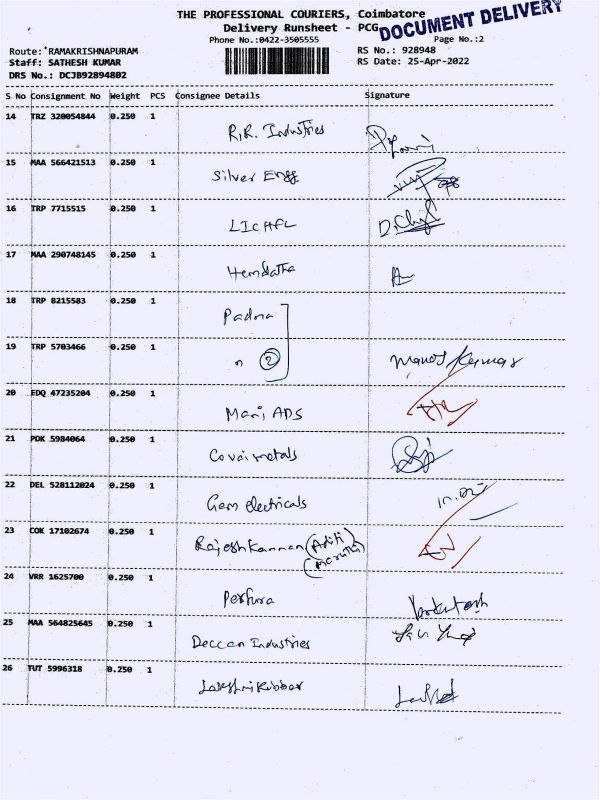 THE PROFESSIONAL COURIERS, Coimbatore
Delivery Runsheet - PCG
DOCUMENT DELIVERY
Phone No.:0422-3505555
Page No.:2
Route: RAMAKRISHNAPURAM
RS No.: 928948
Staff: SATHESH KUMAR
RS Date: 25-Apr-2022
DRS No.: DCJB92894802
S No Consignment No Weight PCS Consignee Details Signature
14 TRZ 320054844 0.250 1
R.R. Industries
15 MAA 566421513 0.250 1
Silver Engg
16 TRP 7715515 0.250 1
LICHFL
17 MAA 290748145 0.250 1
Hemdatha
18 TRP 8215583 0.250 1
Padma
19 TRP 5703466 0.250 1
" 2 Manoj Kumar
20 EDQ 47235204 0.250 1
Mani ADS
21 PDK 5984064 0.250 1
Covai metals
22 DEL 528112024 0.250 1
Gem electricals
23 COK 17102674 0.250 1
Rajesh Kannan (Aditi
(Maruthi)
24 VRR 1625700 0.250 1
Perfura Venkatesh
25 MAA 564825645 0.250 1
Deccan Industries
26 TUT 5996318 0.250 1